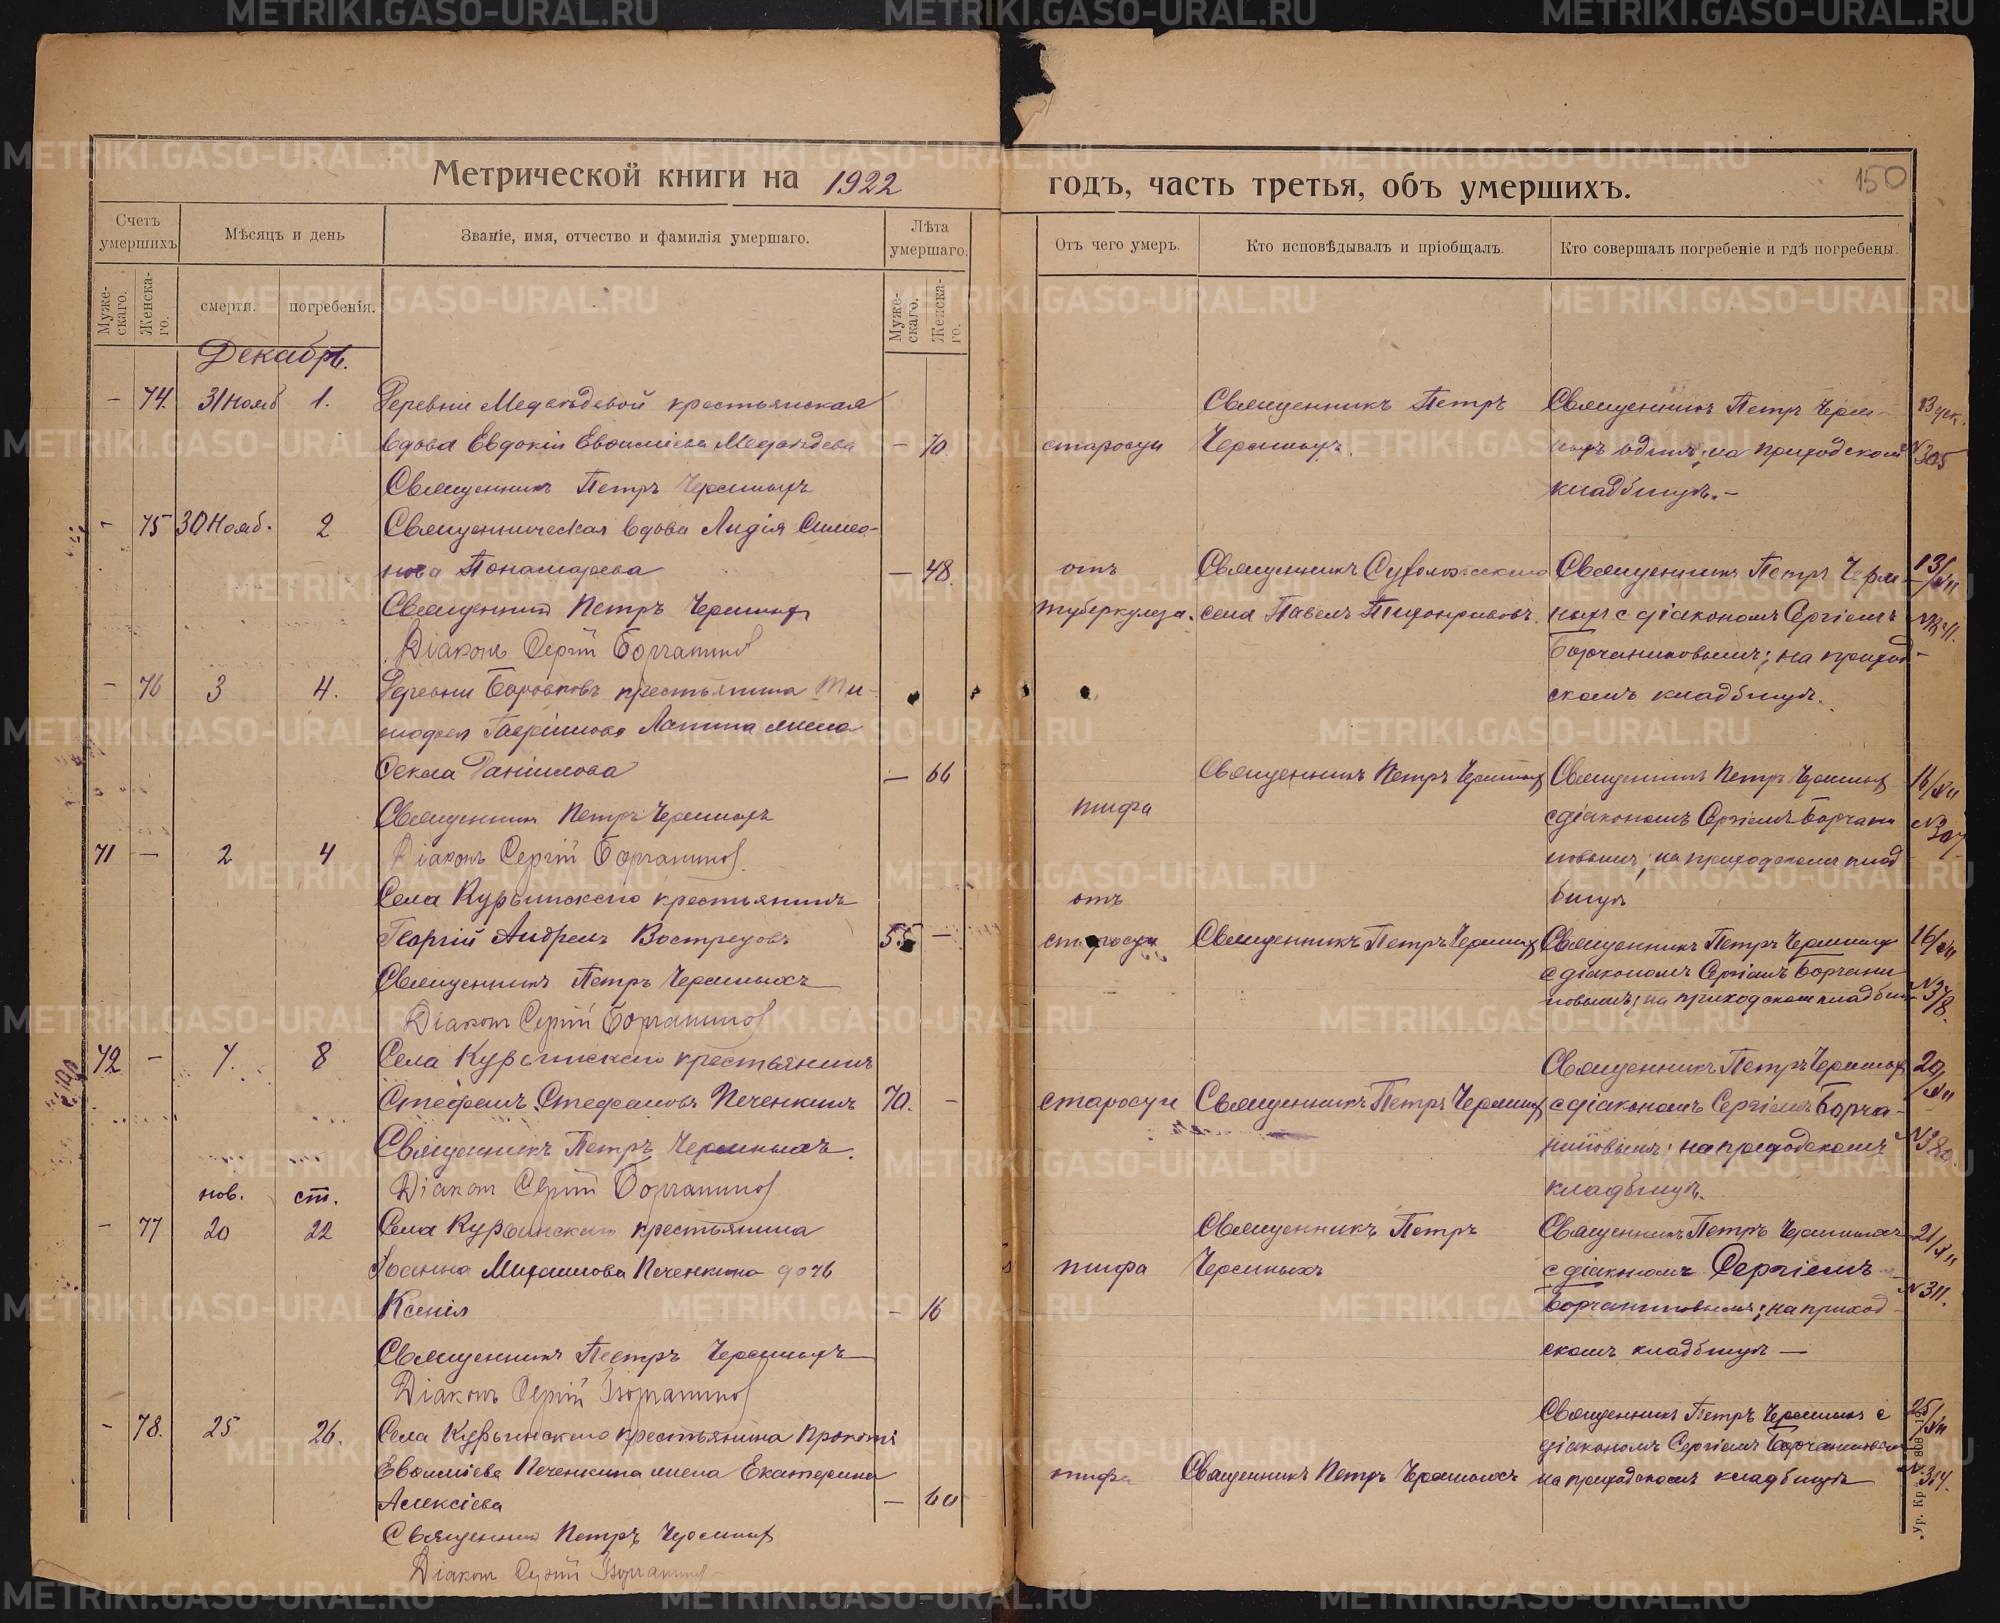 Метрической книги на 1922
годъ, часть третья, объ умершихъ.
150
Счетъ умершихъ
Мѣсяцъ и день
Званіе, имя, отчество и фамилія умершаго.
Лѣта умершаго.
Отъ чего умеръ.
Кто исповѣдывалъ и пріобщалъ.
Кто совершалъ погребеніе и гдѣ погребены.
Муже-скаго.
Женска-го.
смерти.
погребенія.
Муже-скаго.
Женска-го.
Декабрь.
– 74. 31 Нояб 1. Деревни Медвѣдевой крестьянская
вдова Евдокія Евѳиміева Медвѣдева – 70.
Священникъ Петръ Черемныхъ
старости
Священникъ Петръ
Черемныхъ.
Священникъ Петръ Черем-
ныхъ одинъ; на приходскомъ
кладбищѣ.–
№ 305
– 75 30 Нояб. 2 Священническая вдова Лидія Симео-
нова Пономарева – 48.
Священник Петръ Черемных
Діаконъ Сергій Борчанинов
отъ
туберкулеза.
Священникъ Сухоложскаго
села Павелъ
Священникъ Петръ Черем-
ныхъ с діакономъ Сергіемъ
Борчаниновымъ; на приход-
скомъ кладбищѣ.
13/XII
– 76 3 4. Деревни крестьянина Ти-
мофея Гавріилова Лапина жена
Ѳекла Даніилова – 66
Священникъ Петръ Черемныхъ
Діаконъ Сергій Борчанинов.
тифа
Священникъ Петръ Черемных
Священникъ Петръ Черемных
с діакономъ Сергіемъ Борчани
новымъ; на приходскомъ клад
бищѣ
16/XII
№ 307
71 – 2 4
Села Курьинскаго крестьянинъ
Георгій Андреевъ Востреловъ 55 –
Священникъ Петръ Черемныхъ
Діакон Сергій Борчанинов
отъ
старости
Священникъ Петръ Черемных
Священникъ Петръ Черемных
с діакономъ Сергіемъ Борчани
новымъ; на приходскомъ кладбищ
16/XII
№ 378.
72 – 7. 8 Села Курьинскаго крестьянинъ
Стефанъ Стефановъ Печенкинъ 70. –
Священникъ Петръ Черемныхъ.
Діакон Сергій Борчанинов
старости
Священникъ Петръ Черемных
Священникъ Петръ Черемных
с діакономъ Сергіемъ Борча-
ниновымъ; на приходскомъ
кладбищѣ.
20/XII
№ 380.
нов. ст.
– 77 20 22 Села Курьинскаго крестьянина
Іоанна Михаилова Печенкина дочь
Ксенія – 16
Священникъ Петръ Черемныхъ
Діаконъ Сергій Борчанинов
тифа
Священникъ Петръ
Черемныхъ
Священникъ Петръ Черемныхъ
с діакономъ Сергіемъ
Борчаниновымъ; на приход-
скомъ кладбищѣ –
21/XII
№ 311.
– 78. 25 26. Села Курьинскаго крестьянина Прокопія
Евѳиміева Печенкина жена Екатерина
Алексіева – 60
Священник Петръ Черемных
Діакон Сергій Борчанинов
тифа
Священникъ Петръ Черемныхъ
Священникъ Петръ Черемныхъ с
діакономъ Сергіемъ Борчаниновымъ
на приходскомъ кладбищѣ
25/XII
№ 314.
METRIKI.GASO-URAL.RU